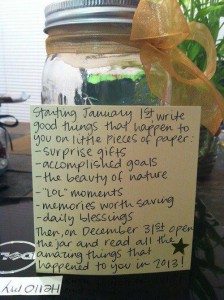 Starting January 1st write
good things that happen to
you on little pieces of paper:
-surprise gifts
-accomplished goals
-the beauty of nature
-"LOL" moments
-memories worth saving
-daily blessings
Then, on December 31st open
the jar and read all the
amazing things that
happened to you in 2013!
Hello my